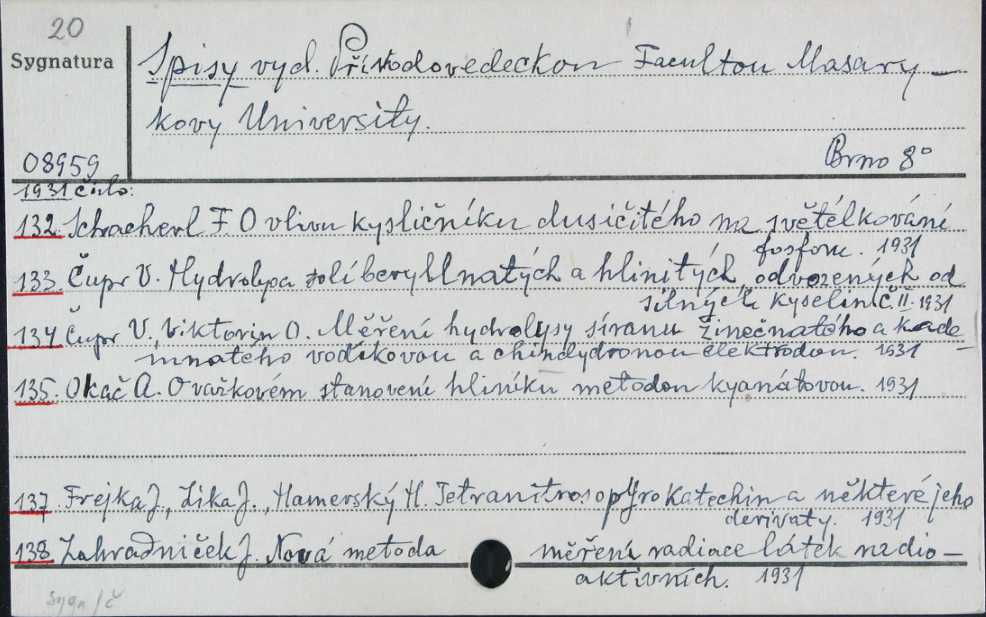 20
Sygnatura
Spisy vyd. Přírodovedeckou Facultou Masary-
kovy University.
08959
Brno 8°
1931 číslo:
132. Schacherl F. O vlivu kysličníku dusičitého na světélkování
fosforu. 1931
133. Čupr V. Hydrolysa solí beryllnatých a hlinitých odvozených od
silných kyselin Č.II. 1931
134 Čupr V., Viktorin O. Měření hydrolysy síranu zinečnatého a kade-
mnatého vodíkovou a chinhydronou elektrodou. 1931
135. Okáč A. O važkovém stanovení hliníku metodou kyanátovou. 1931
137. Frejka J., Zika J., Hamerský H. Tetranitrosopyrokatechin a některé jeho
derivaty. 1931
138. Zahradníček J. Nová metoda měření radiace látek radio-
aktivních. 1931
Sygn/č